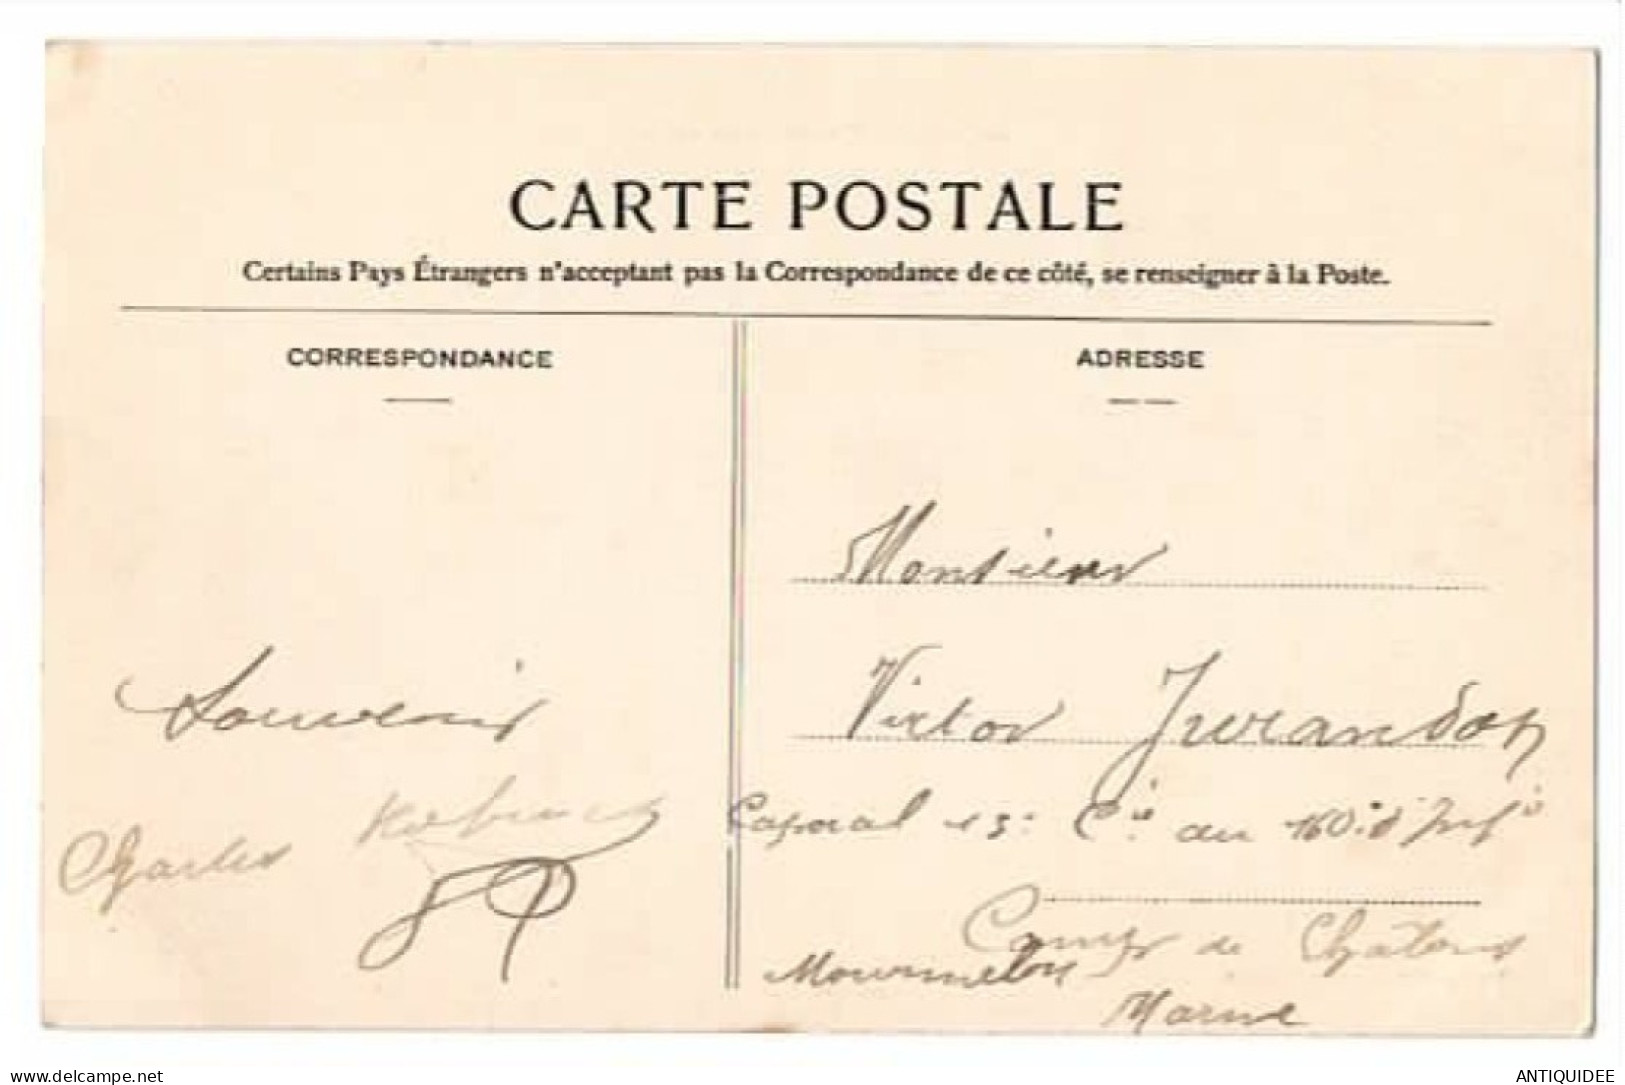 CARTE POSTALE
Certains Pays Étrangers n'acceptant pas la Correspondance de ce côté, se renseigner à la Poste.
CORRESPONDANCE
Souvenir
Charles
ADRESSE
Monsieur
Victor Jurandon
Caporal 13e Cie au 160e d'Infie
Camp de Châlons
Mourmelon
Marne
www.delcampe.net
ANTIQUIDEE